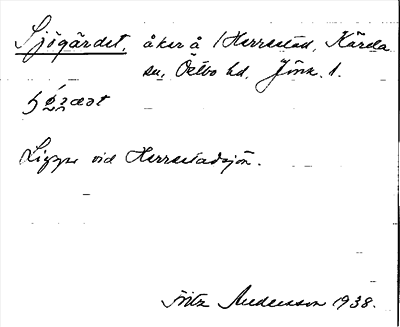 Sjögärdet, åker å Herrestad, Kärda
sn, Östbo hd, Jönk. l.
Ligger vid Herrestadsjön.
Fritz Andersson 1938.